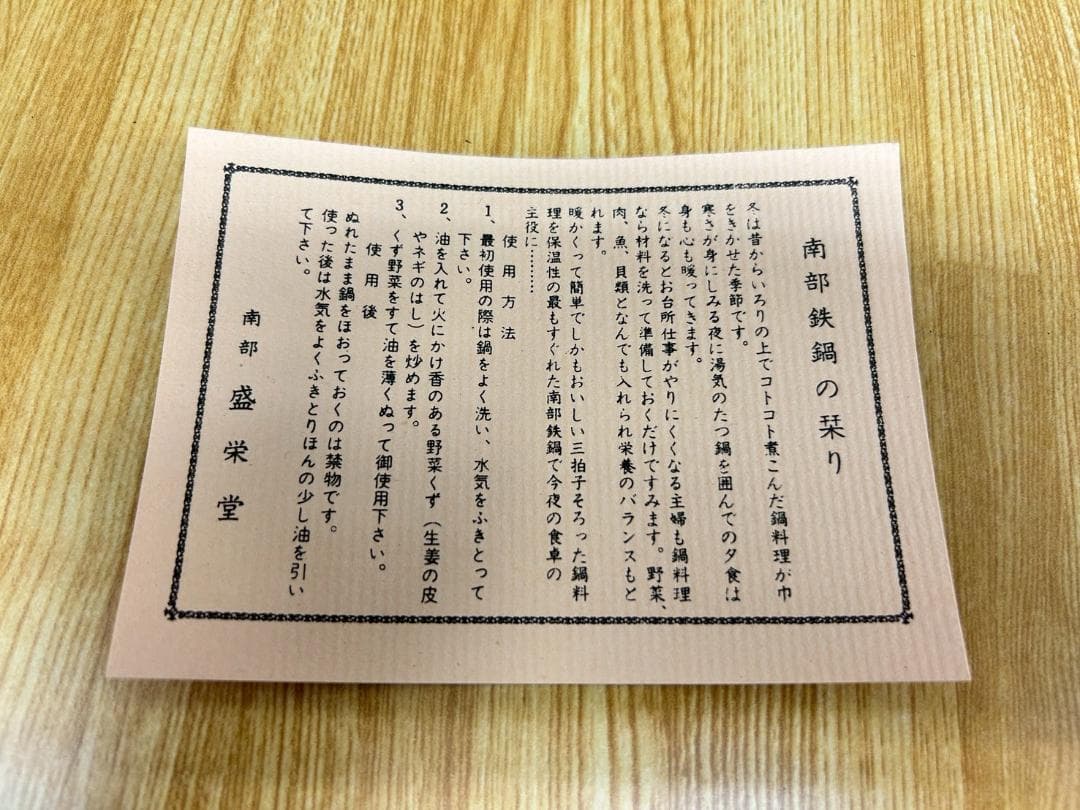 南部鉄鍋の栞り
冬は昔からいろりの上でコトコト煮こんだ鍋料理が巾
をきかせた季節です。
寒さが身にしみる夜に湯気のたつ鍋を囲んでの夕食は
身も心も暖ってきます。
冬になるとお台所仕事がやりにくくなる主婦も鍋料理
なら材料を洗って準備しておくだけですみます。野菜、
肉、魚、貝類となんでも入れられ栄養のバランスもと
れます。
暖かくって簡単でしかもおいしい三拍子そろった鍋料
理を保温性の最もすぐれた南部鉄鍋で今夜の食卓の
主役に………
使用方法
1、最初使用の際は鍋をよく洗い、水気をふきとって
下さい。
2、油を入れて火にかけ香のある野菜くず（生姜の皮
やネギのはし）を炒めます。
3、くず野菜をすて油を薄くぬって御使用下さい。
使用後
ぬれたまま鍋をほおっておくのは禁物です。
使った後は水気をよくふきとりほんの少し油を引い
て下さい。
南部 盛栄堂